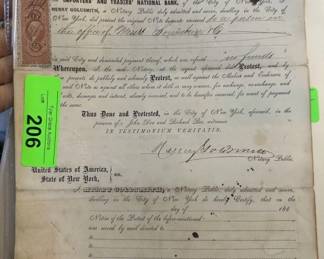 IMPORTERS AND TRADERS NATIONAL BANK,
HENRY GOLDSMITH, a Notary Public duly admitted and sworn, dwelling in the City of
New York, did present the original Note hereunto annexed to a person in
the office of Messrs
said City and demanded payment thereof, which was refused
Whereupon, I, the said Notary, at the request aforesaid, did Protest, and by
these presents do publicly and solemnly Protest, as well against the Maker and Endorsers of
said Note as against all others whom it doth or may concern, for exchange, re-exchange and
all costs, damages and interest, already incurred, and to be hereafter incurred, for want of payment of
the same.
Thus Done and Protested, in the City of New York, aforesaid, in the
presence of John Doe and Richard Roe, witnesses.
IN TESTIMONIUM VERITATIS.
Henry Goldsmith
Notary Public.
United States of America,
State of New York,
I, HENRY GOLDSMITH, a Notary Public duly admitted and sworn,
dwelling in the City of New York do hereby Certify, that on the
day of 186
Notice of the Protest of the before-mentioned
was served by mail directed to
Lot#
206